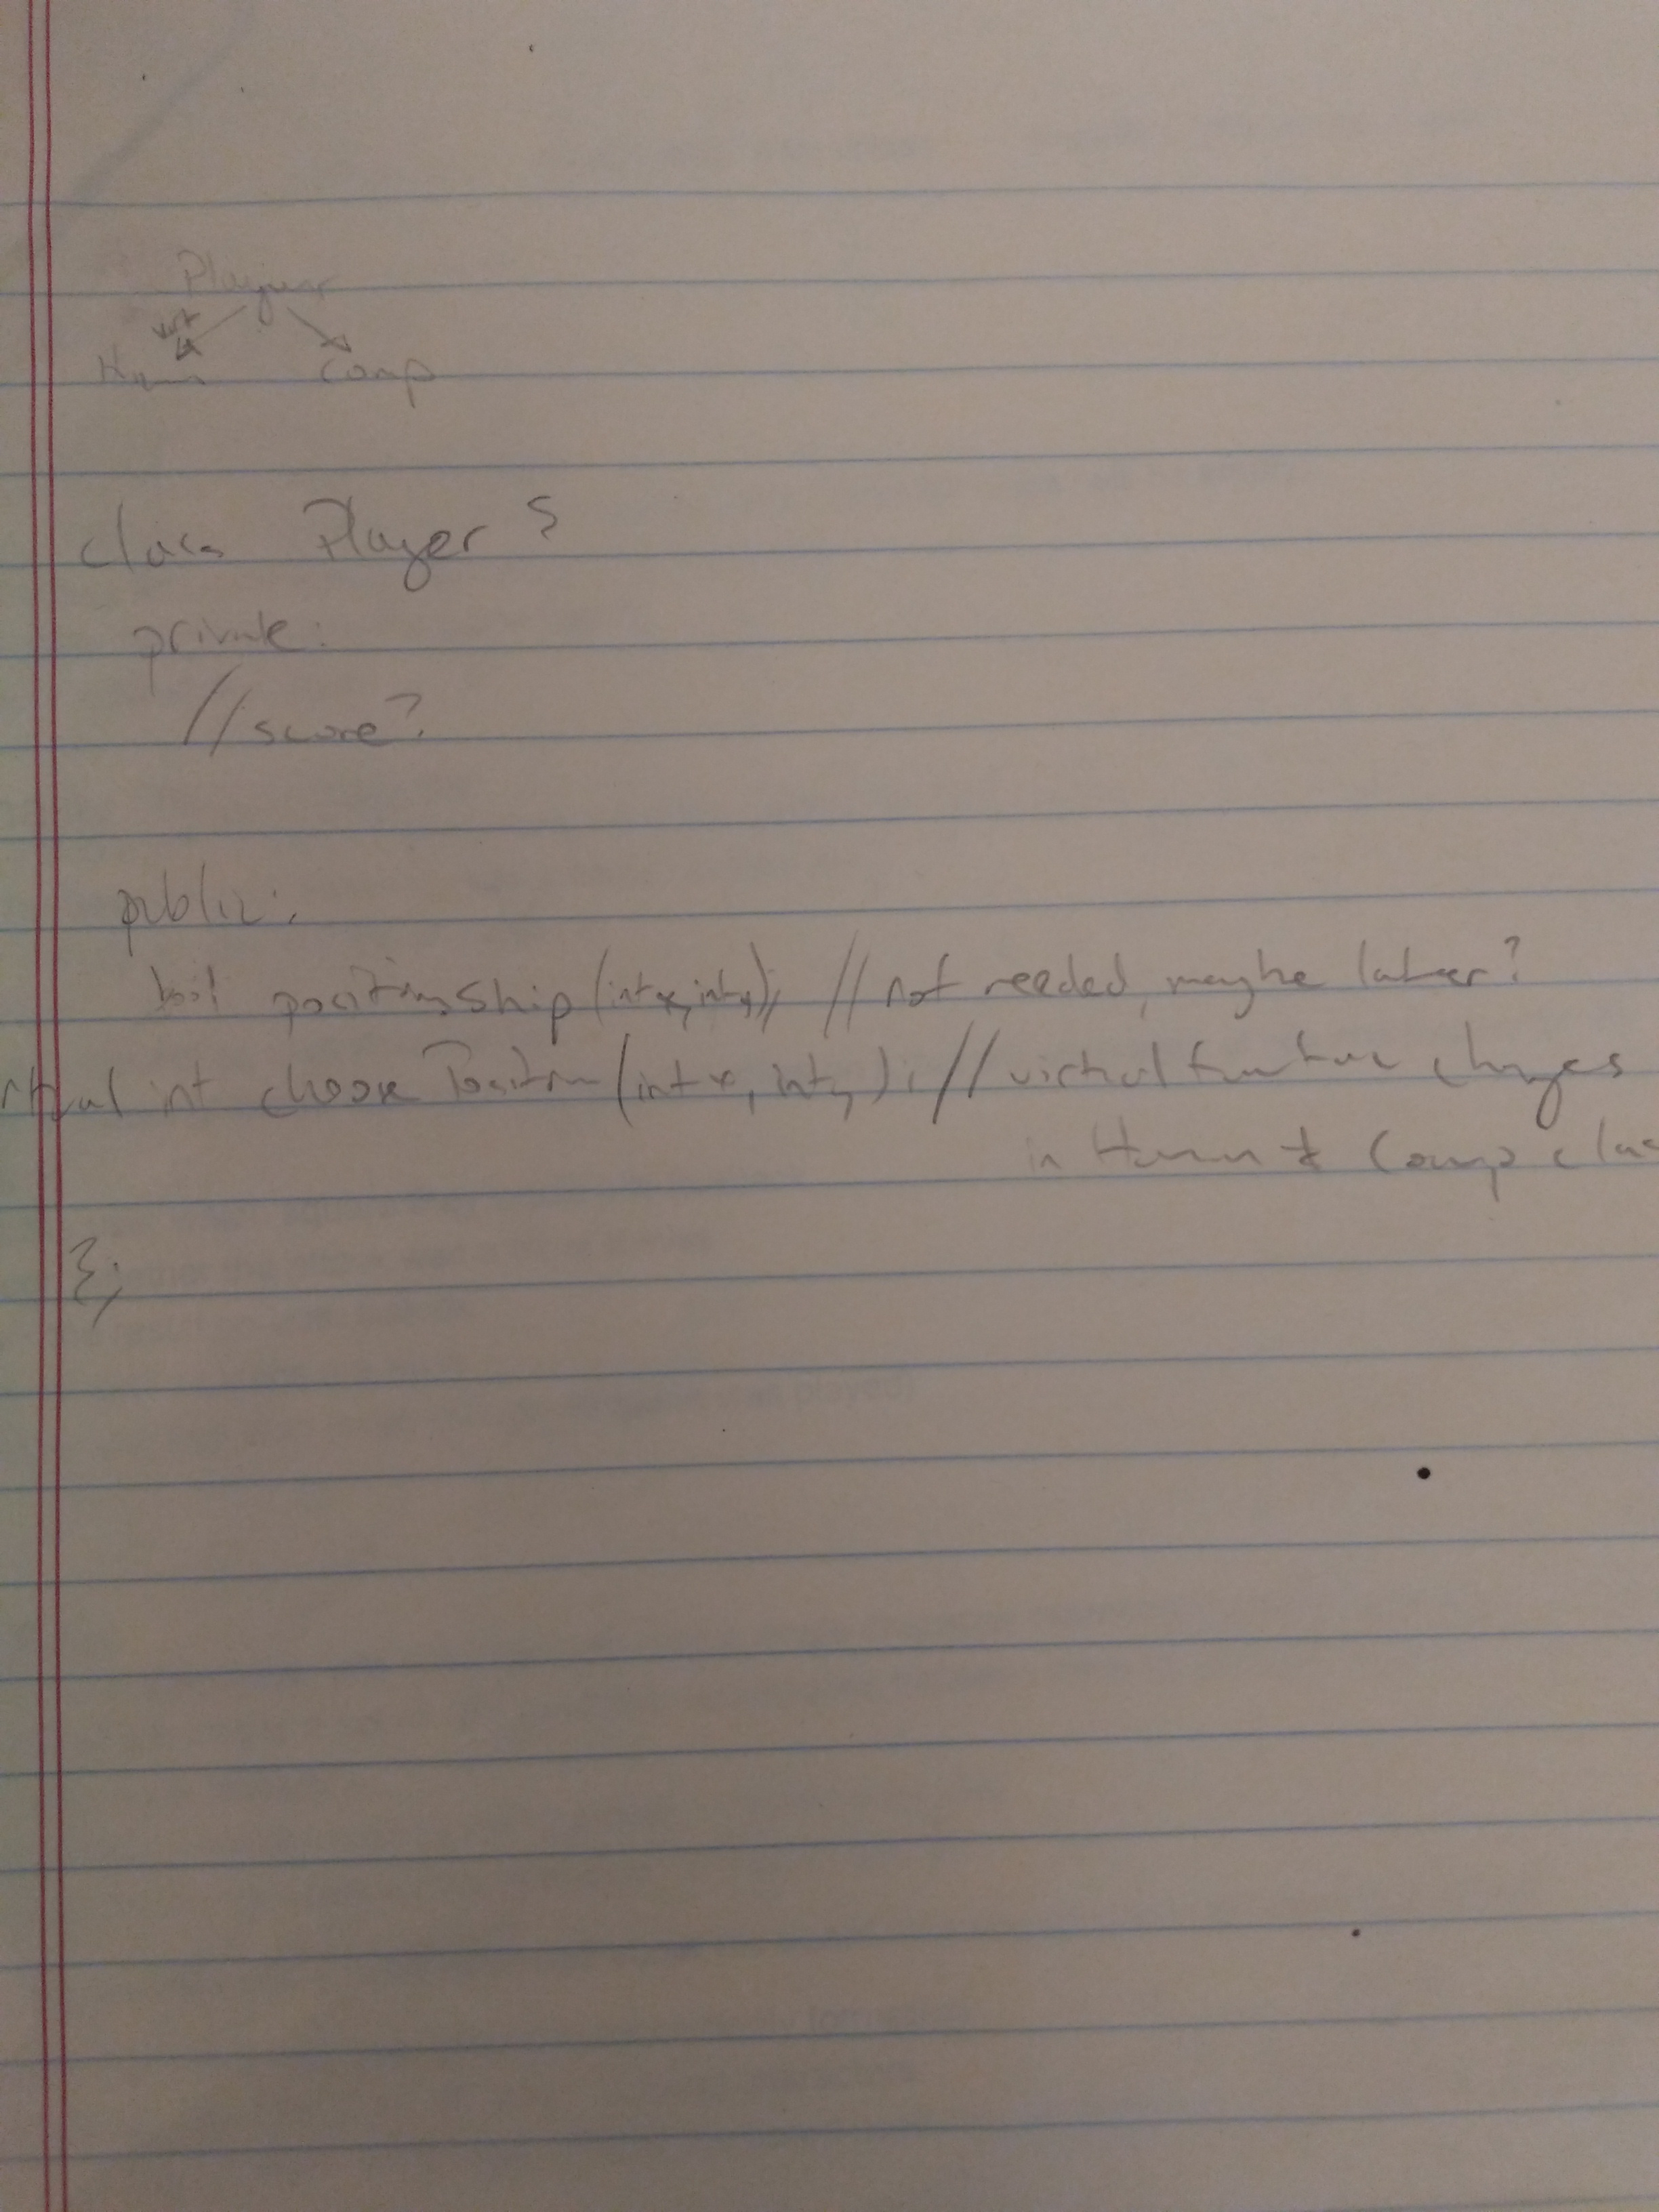 Player
Human Comp
class Player {
private:
//score?
public:
bool positionShip(int x, int y); //not needed, maybe later?
virtual int choosePosition(int x, int y); // virtual function changes
in Human & Comp clas
};